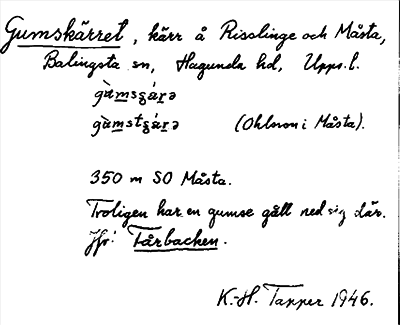 Gumskärret, kärr å Risslinge och Måsta,
Balingsta sn, Hagunda hd, Upps. l.
gùmsʂárə
gùmstʂárə (Ohlsson i Måsta).
350 m SO Måsta.
Troligen har en gumse gått ned sig där.
Jfr: Fårbacken.
K.-H. Tapper 1946.